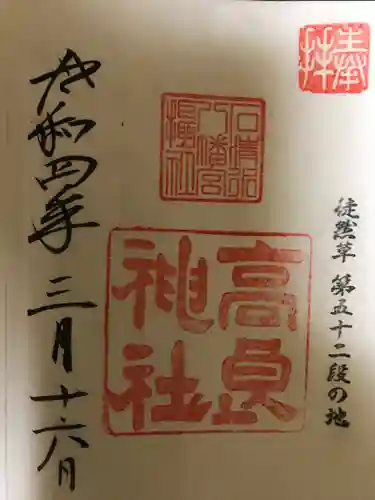 奉拝
徒然草 第五十二段の地
石清水
八幡宮
摂社
高良
神社
令和四年 三月十六日